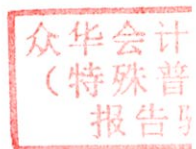 众华会计
（特殊普
报告